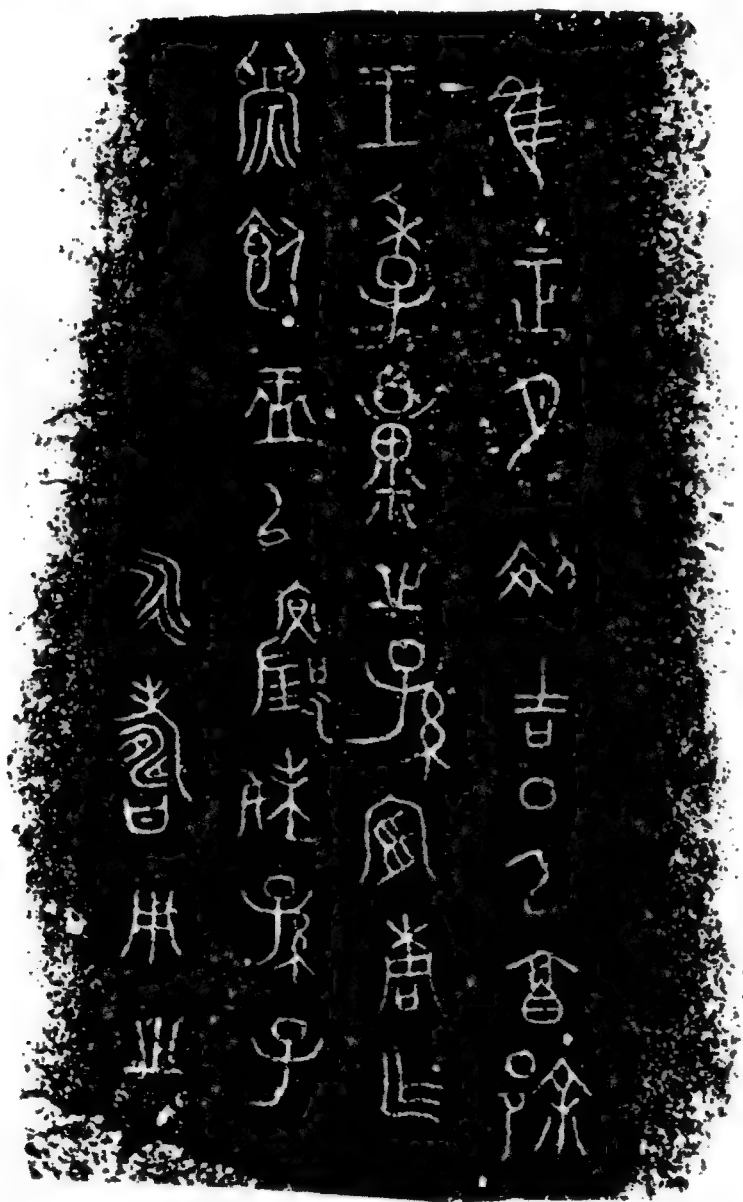 隹正月初吉日己酉郐
王季糧之孫宜桐乍
鑄飤盂以媵妹孫子
永壽用之